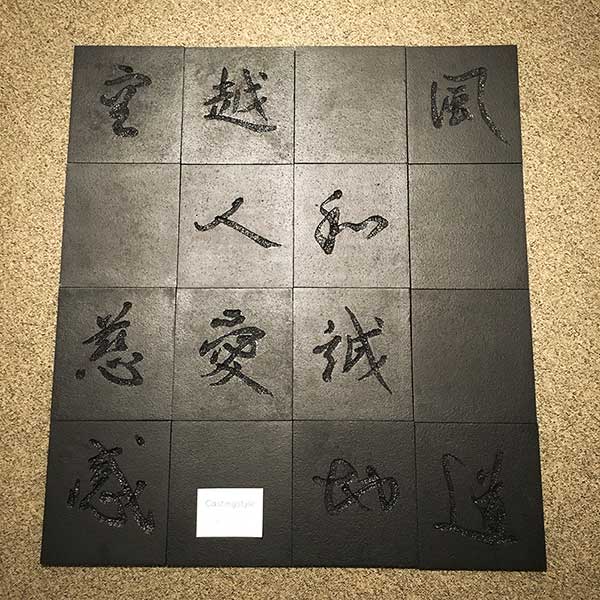 空 越 風
人 和
慈 愛 誠
感 道
Castingstyle